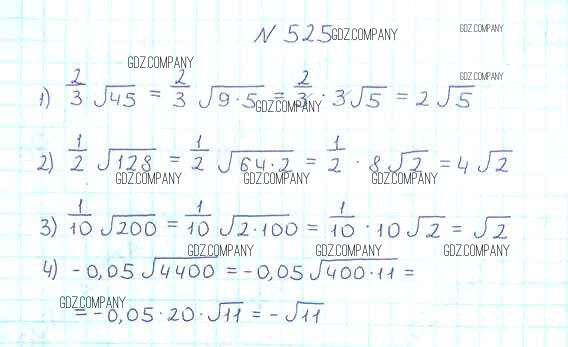 N 525 GDZ.COMPANY GDZ.COMPANY
GDZ.COMPANY GDZ.COMPANY
1) 2/3 √45 = 2/3 √9·5 = 2/3 · 3√5 = 2√5
GDZ.COMPANY
2) 1/2 √128 = 1/2 √64·2 = 1/2 · 8√2 = 4√2
GDZ.COMPANY GDZ.COMPANY GDZ.COMPANY
3) 1/10 √200 = 1/10 √2·100 = 1/10 · 10√2 = √2
GDZ.COMPANY GDZ.COMPANY GDZ.COMPANY
4) -0,05 √4400 = -0,05 √400·11 =
GDZ.COMPANY
= -0,05·20·√11 = -√11